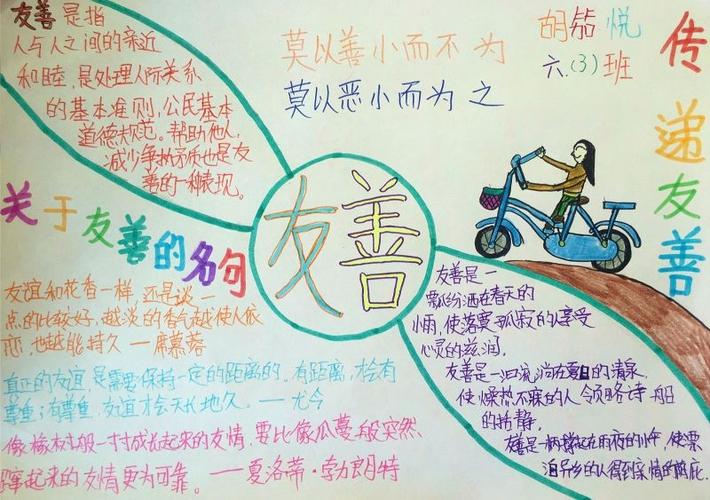 友善是指
人与人之间的亲近
和睦,是处理人际关系
的基本准则,公民基本
道德规范。帮助他人,
减少争执矛盾也是友
善的一种表现。
莫以善小而不为
莫以恶小而为之
胡 悦
六.(3)班
传递友善
友善
关于友善的名句
友谊和花香一样,还是淡一
点的比较好,越淡的香气越使人依
恋,也越能持久 — 席慕蓉
真正的友谊是需要保持一定的距离的。有距离,才会有
尊重;有尊重,友谊才会天长地久。— 尤今
像橡树般一寸寸成长起来的友情,要比像瓜蔓般突然
蹿起来的友情更为可靠。—夏洛蒂·勃朗特
友善是一
飘纷洒在春天的
小雨,使落寞孤寂的人享受
心灵的滋润。
友善是一汩流淌在夏日的清泉,
使燥热不寐的人领略诗般
的恬静。
友善是一柄撑起在雨夜的小伞,使漂
泊异乡的人得到亲情的荫庇。